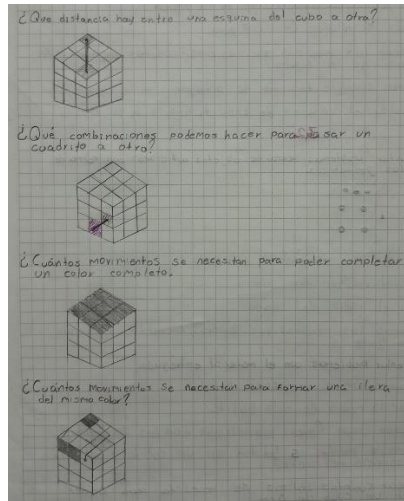 ¿Que distancia hay entre una esquina del cubo a otra?
¿Qué combinaciones podemos hacer para pasar un
cuadrito a otro?
¿Cuántos movimientos se necesitan para poder completar
un color completo.
¿Cuántos movimientos se necesitan para formar una ilera
del mismo color?